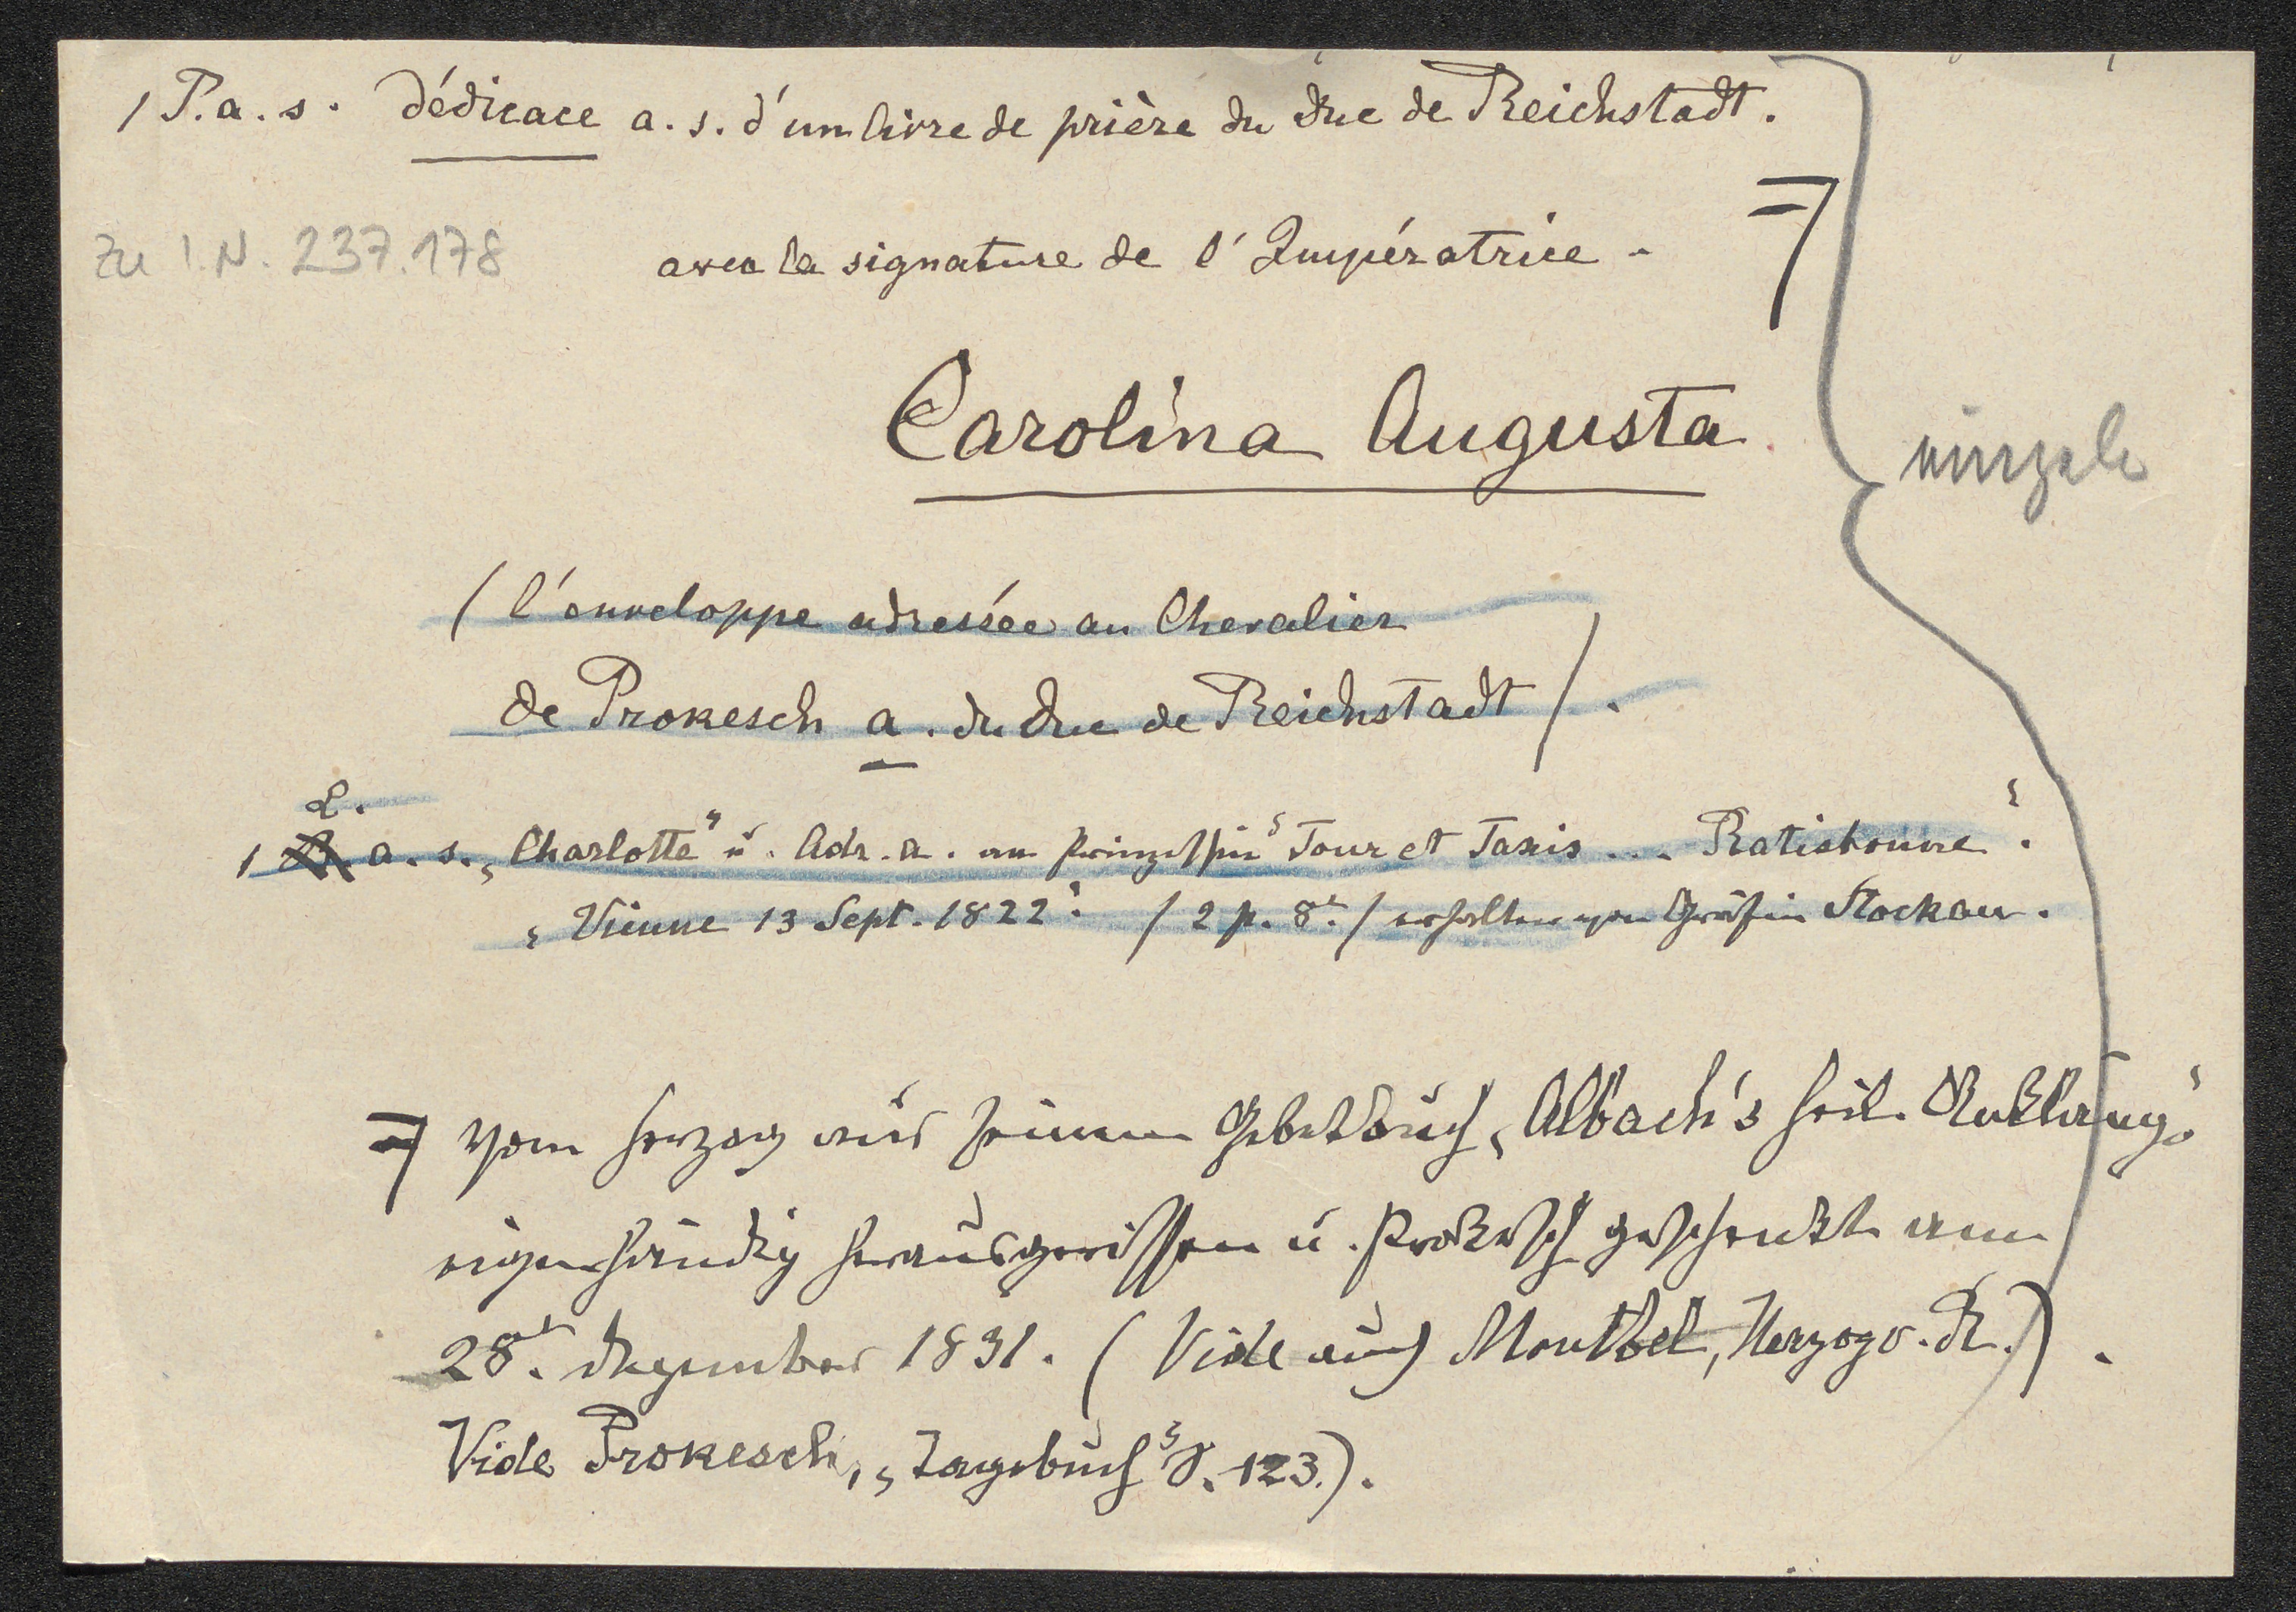 1 P. a. s. Dédicace a. s. d'un livre de prière du Duc de Reichstadt.
zu I. N. 237.178
avec la signature de l'Impératrice -
Carolina Augusta
einzeln
( l'enveloppe adressée au Chevalier
de Prokesch a. du Duc de Reichstadt ) .
L.
1 a. s. „Charlotte" u. Adr. a. an Prinzessin „Tour et Taxis ... Ratisbonne".
„Vienne 13 Sept. 1822". / 2 p. 8°. / erhalten von Gräfin Stockau.
vom Herzog aus seinem Gebetbuch „Albach's heil. Anklänge"
eigenhändig herausgerissen u. Prokesch geschenkt am
28t. Dezember 1831. ( Vide auch Montbel, Herzog v. R. ) .
Vide Prokesch, „Tagebuch" S. 123. ) .